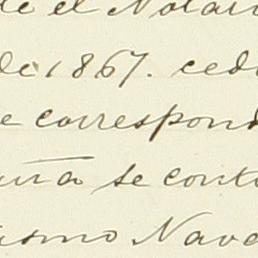 de el Notari
de 1867. cedi
e correspond
una se conti
ismo Nava